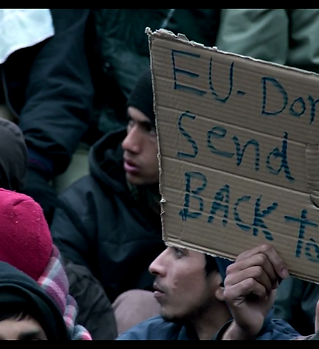 EU- Don
Send
BACK to